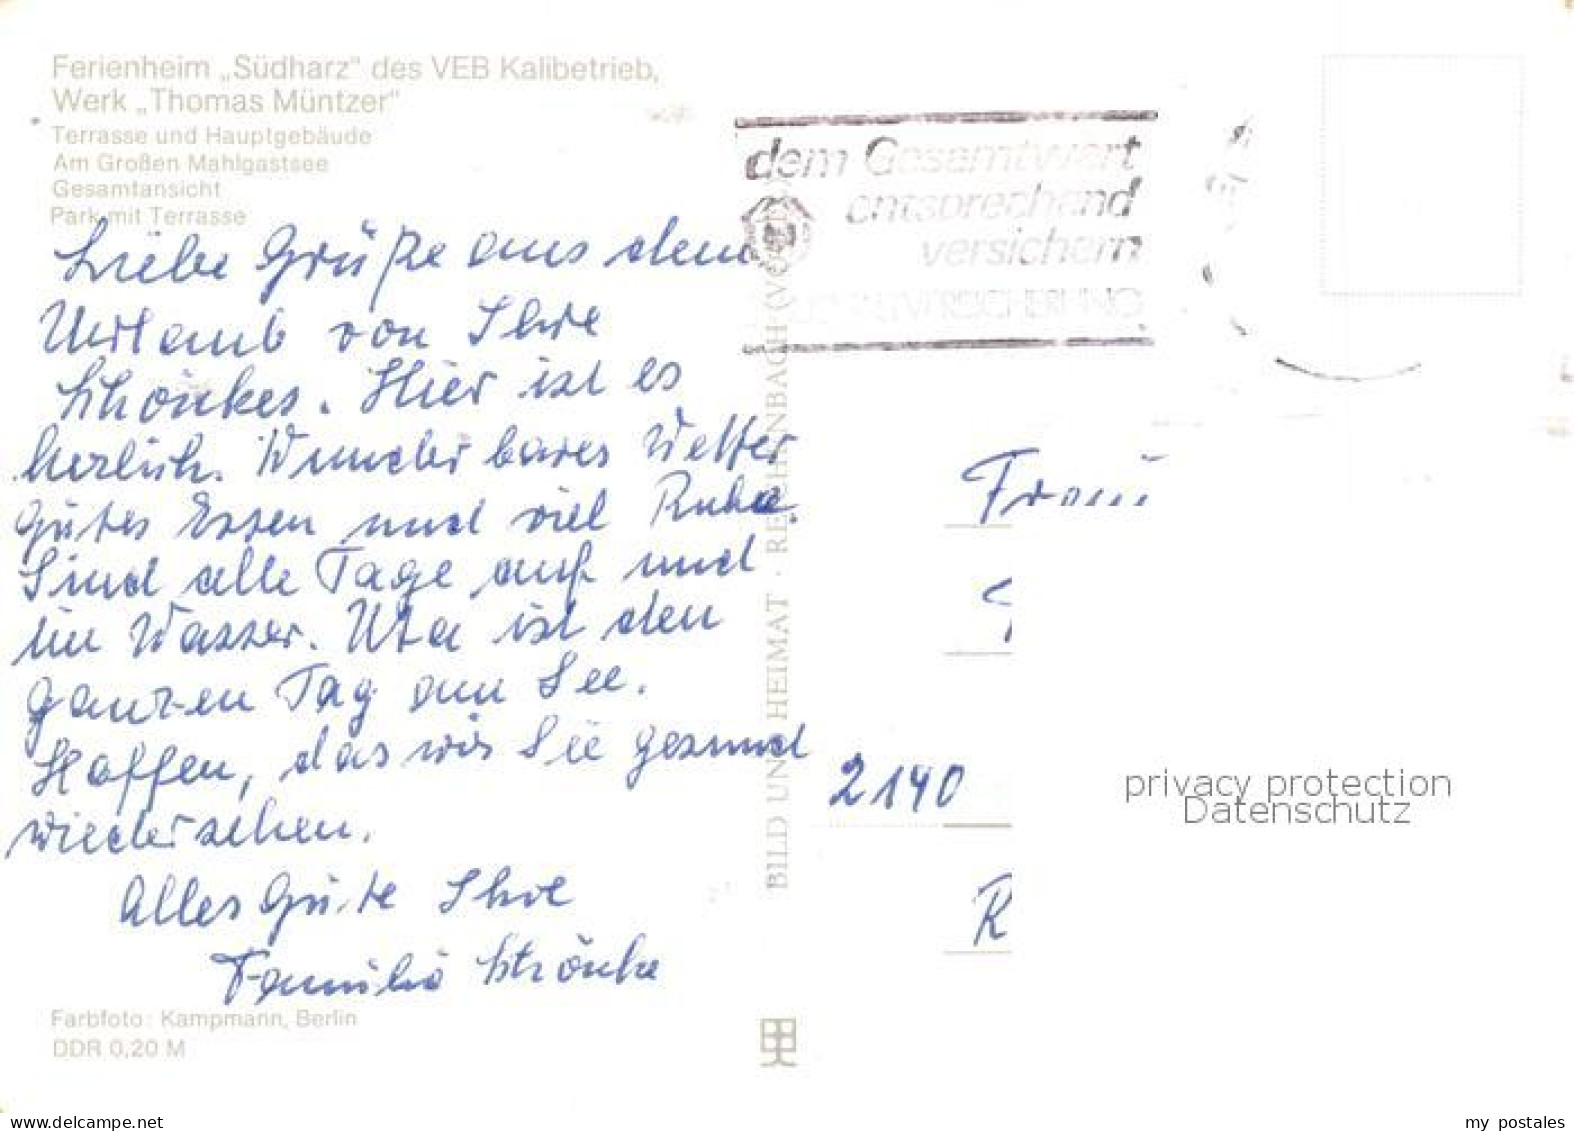 Ferienheim „Südharz" des VEB Kalibetrieb,
Werk „Thomas Müntzer"
Terrasse und Hauptgebäude
Am Großen Mahlgastsee
Gesamtansicht
Park mit Terrasse
Liebe Grüße aus dem
Urlaub von Ihre
Schönkes. Hier ist es
herlich. Wunderbares Wetter
gutes Essen und viel Ruhe.
Sind alle Tage auf und
im Wasser. Uta ist den
ganzen Tag am See.
Hoffen, das wir Sie gesund
wiedersehen.
Alles Gute Ihre
Familie
Farbfoto: Kampmann, Berlin
DDR 0,20 M
BILD UND HEIMAT · REICHENBACH (VOGTL)
dem Gesamtwert
entsprechend
versichern
Frau
2140
R
privacy protection
Datenschutz
www.delcampe.net
my_postales